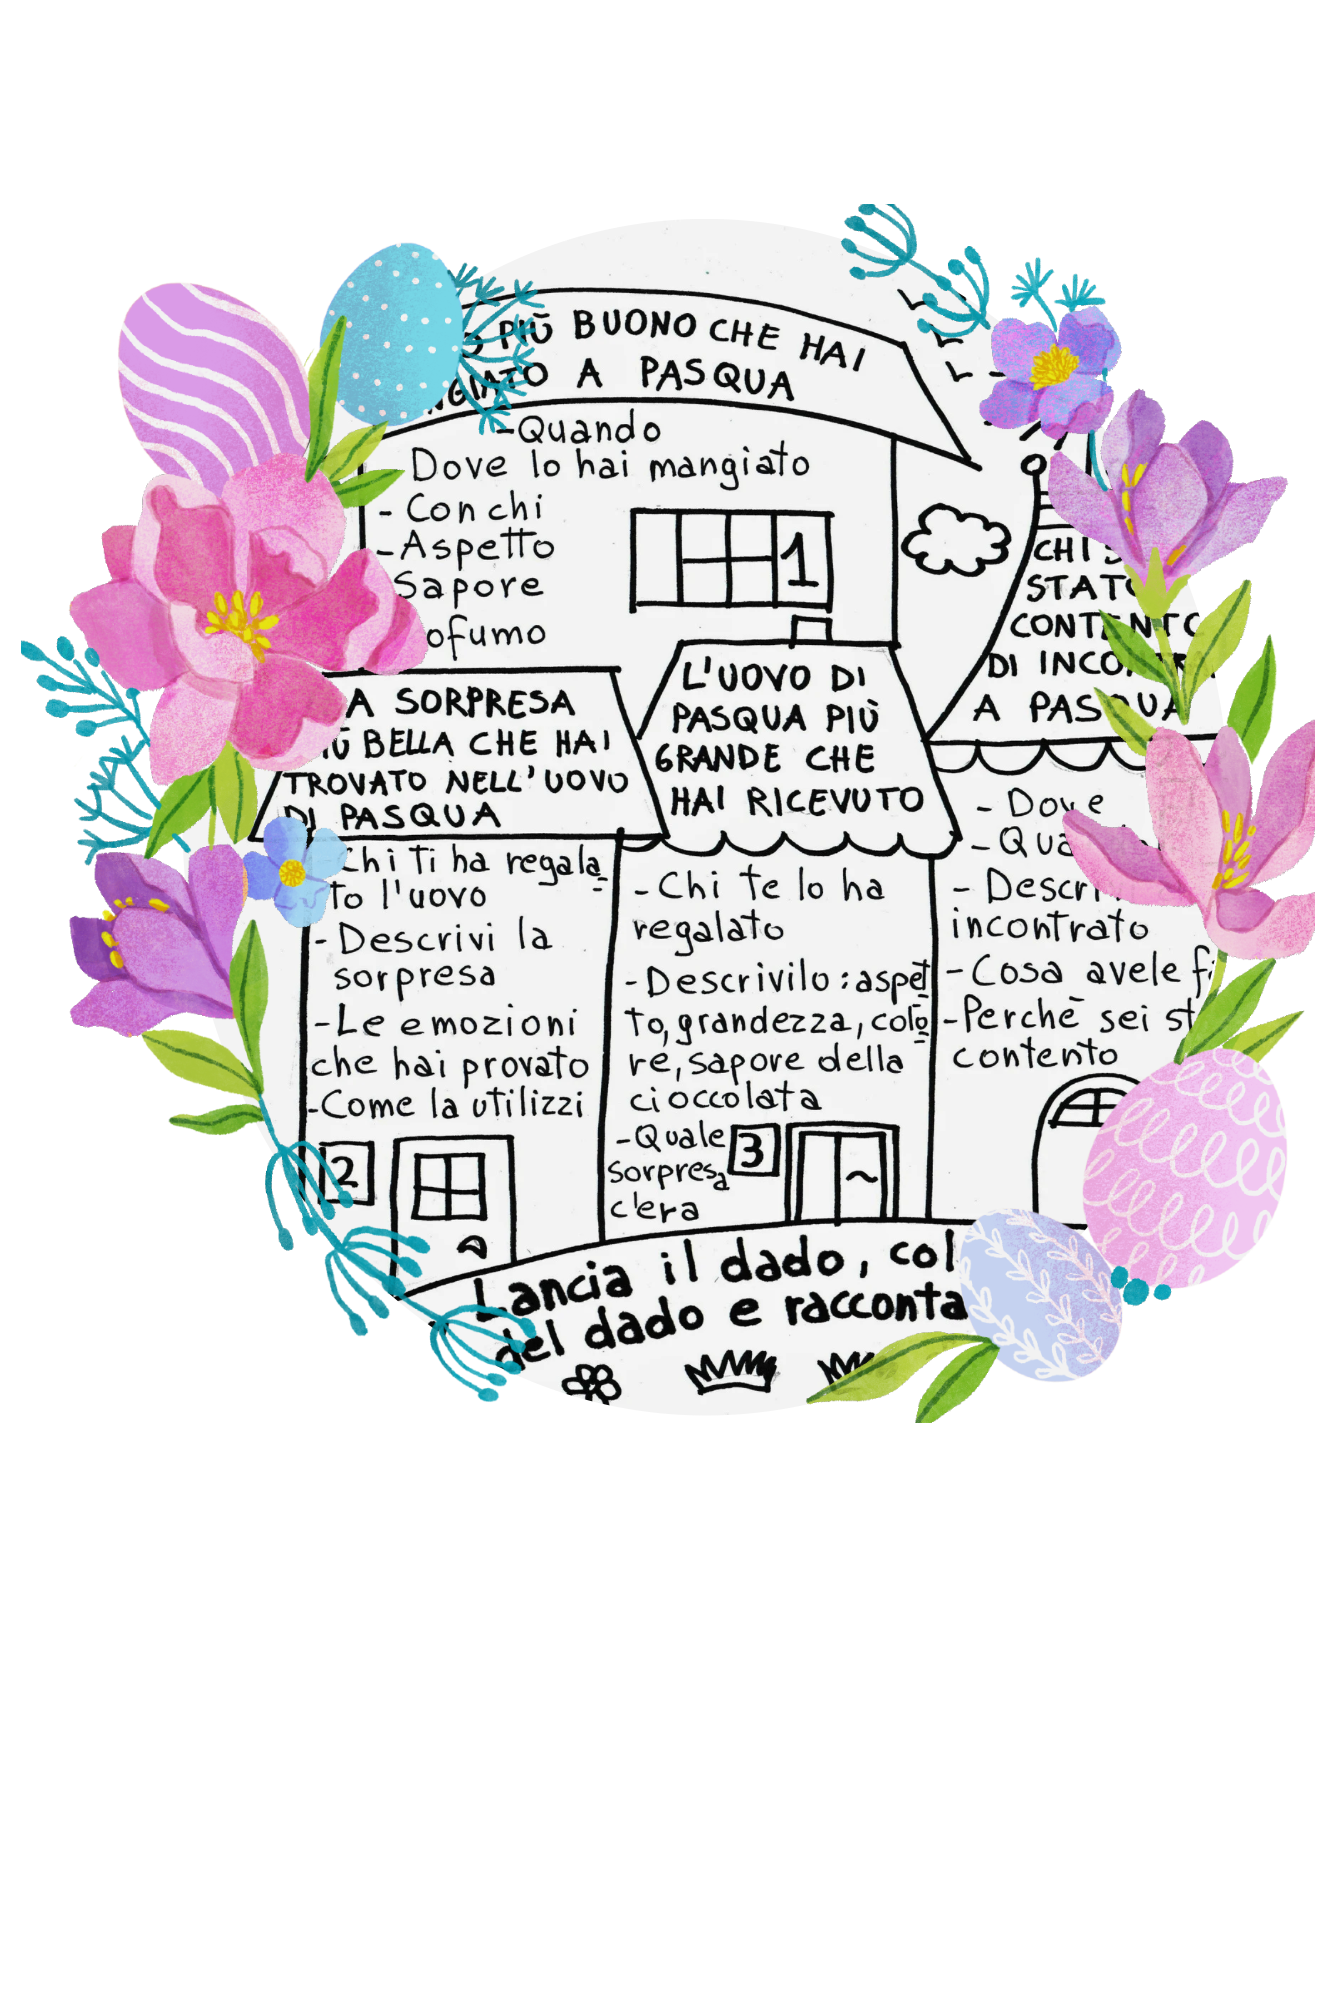 PIÙ BUONO CHE HAI
A PASQUA
-Quando
Dove lo hai mangiato
- Con chi
-Aspetto
Sapore
1
A SORPRESA
BELLA CHE HAI
TROVATO NELL'UOVO
DI PASQUA
Chi Ti ha regala
to l'uovo
- Descrivi la
sorpresa
-Le emozioni
che hai provato
-Come la utilizzi
2
L'UOVO DI
PASQUA PIÙ
GRANDE CHE
HAI RICEVUTO
- Chi te lo ha
regalato
- Descrivilo: aspet
to, grandezza, colo
re, sapore della
cioccolata
-Quale
sorpresa
c'era
3
CHI
STATO
CONTENTO
DI
A PASQUA
- Dove
-
-
incontrato
- Cosa avele
-Perchè sei
contento
Lancia il dado,
del dado e racconta